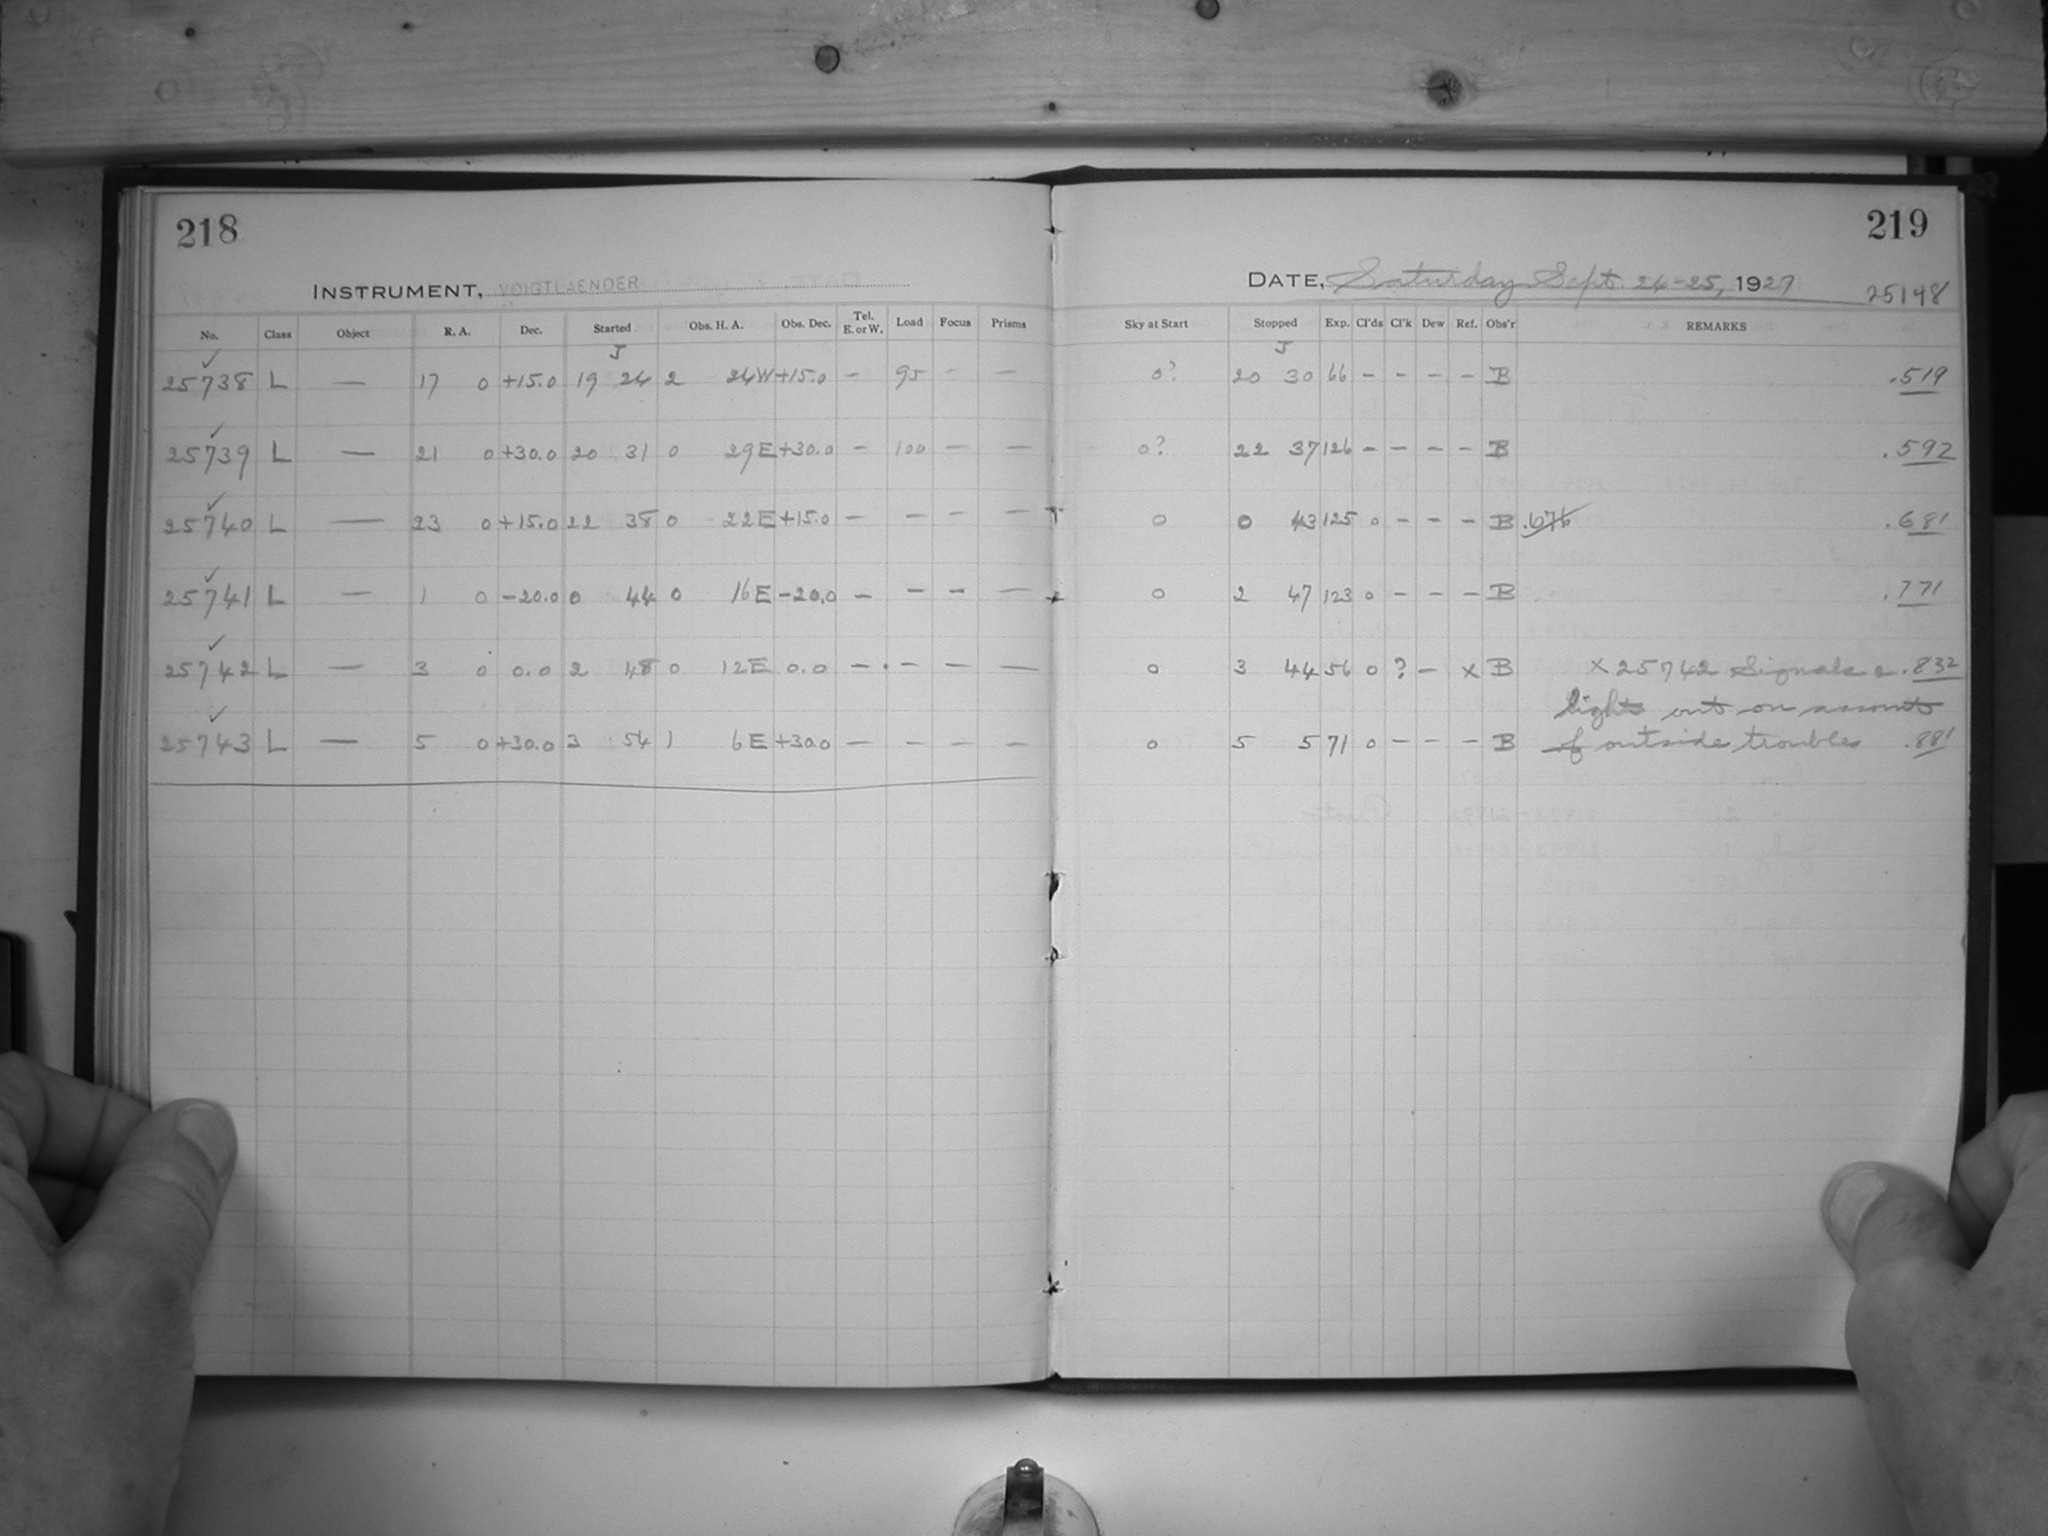 218
INSTRUMENT, VOIGTLAENDER
No. Class Object R. A. Dec. Started Obs. H. A. Obs. Dec. Tel. E. or W. Load Focus Prisms
J
25738 L — 17 0 +15.0 19 24 2 24W +15.0 — 95 — —
25739 L — 21 0 +30.0 20 31 0 29E +30.0 — 100 — —
25740 L — 23 0 +15.0 22 38 0 22E +15.0 — — — —
25741 L — 1 0 -20.0 0 44 0 16E -20.0 — — — —
25742 L — 3 0 0.0 2 48 0 12E 0.0 — — — —
25743 L — 5 0 +30.0 3 54 1 6E +30.0 — — — —
219
DATE, Saturday Sept. 24-25, 1927
25148
Sky at Start Stopped Exp. Cl'ds Cl'k Dew Ref. Obs'r REMARKS
J
0? 20 30 66 — — — — B .519
0? 22 37 126 — — — — B .592
0 0 43 125 0 — — — B .676 .681
0 2 47 123 0 — — — B .771
0 3 44 56 0 ? — x B x 25742 Signals & .832
lights out on account
0 5 5 71 0 — — — B of outside troubles .881